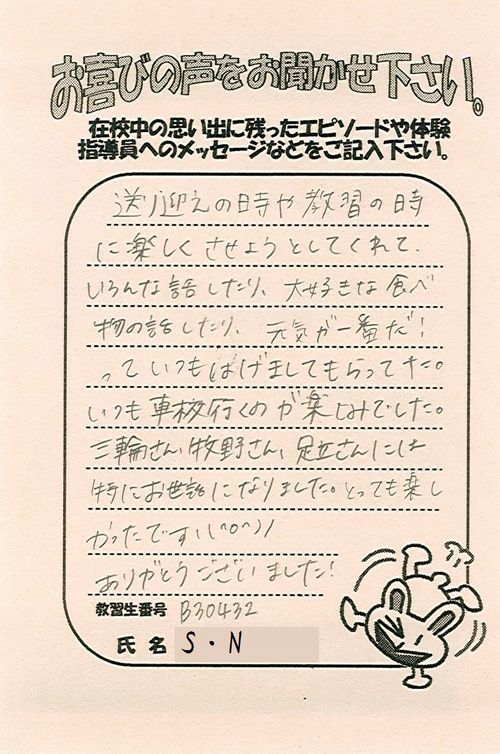 お喜びの声をお聞かせ下さい。
在校中の思い出に残ったエピソードや体験
指導員へのメッセージなどをご記入下さい。
送り迎えの時や教習の時
に楽しくさせようとしてくれて、
いろんな話したり、大好きな食べ
物の話したり、元気が一番だ!
っていつもはげましてもらってた。
いつも車校行くのが楽しみでした。
三輪さん、牧野さん、足立さんには
特にお世話になりました。とっても楽し
かったです!\(^o^)/
ありがとうございました!
教習生番号 B30432
氏名 S・N